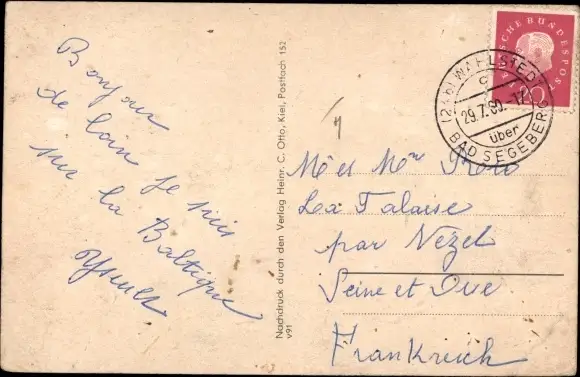 Bonjour
de loin je suis
sur la Baltique
Nachdruck durch den Verlag Heinr. C. Otto, Kiel, Postfach 152
V91
DEUTSCHE BUNDESPOST
20
(24b) WAHLSTEDT
c
29.7.60.-17
über
BAD SEGEBERG
Mr et Mme
La Falaise
par Nézel
Seine et Oise
Frankreich